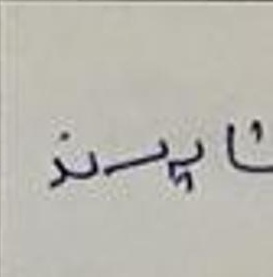 ناپسند